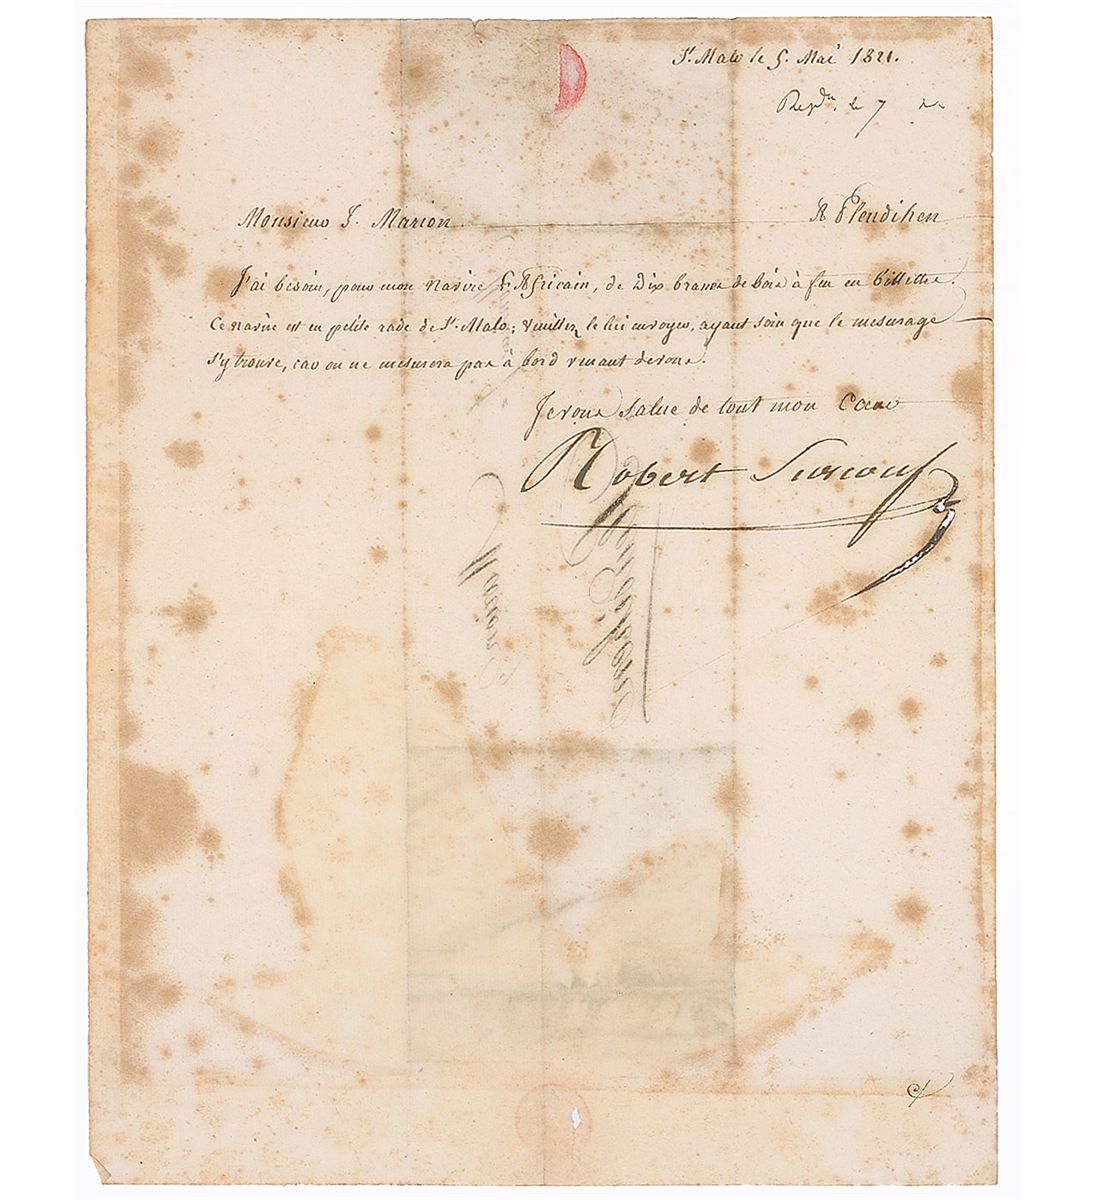 St. Malo le 5. Mai 1821.
Repdu. le 7 do
Monsieur F. Marion A Pleudihen
J'ai besoin, pour mon navire L'Africain, de Dix brasses de bois à feu en billettes.
Ce navire est en petite rade de St. Malo; veuillez le lui envoyer, ayant soin que le mesurage
s'y trouve, car on ne mesurera pas à bord venant de vous.
Je vous salue de tout mon Coeur
Robert Surcouf